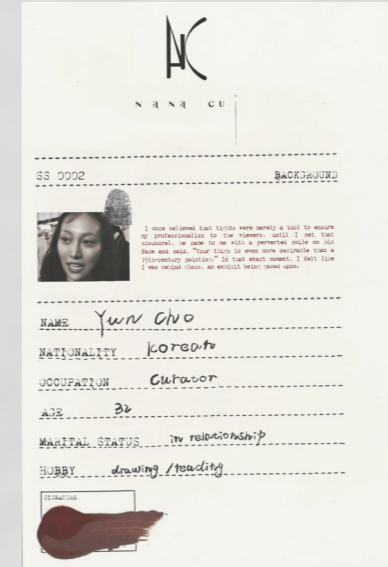 NC
NANA CU
SS 0002 BACKGROUND
I once believed that tights were merely a tool to ensure
my professionalism to the viewers. until I met that
scoundrel. he came to me with a perverted smile on his
face and said. "Your thigh is even more desirable than a
19th-century painting." In that exact moment. I felt like
I was behind glass. an exhibit being gazed upon.
NAME Yun Cho
NATIONALITY Korean
OCCUPATION Curator
AGE 32
MARITAL STATUS in relationship
HOBBY drawing /reading
SIGNATURE